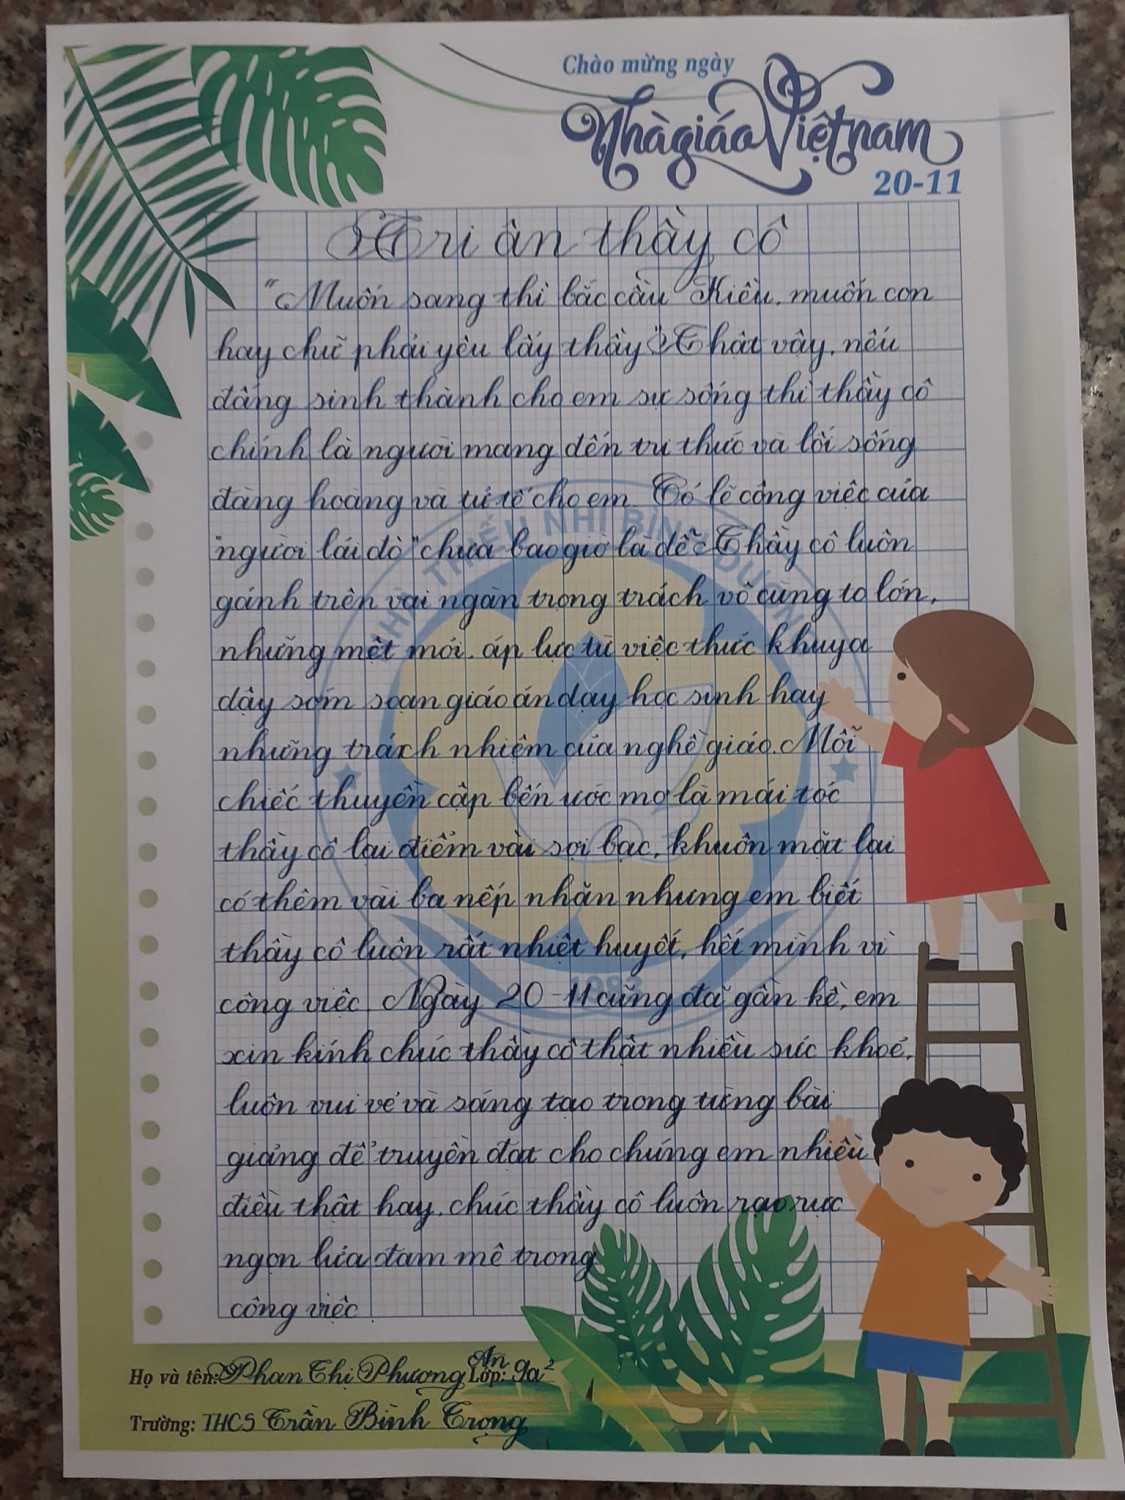 Chào mừng ngày
Nhà giáo Việt nam
20-11
Tri ân thầy cô
"Muốn sang thì bắc cầu Kiều, muốn con
hay chữ phải yêu lấy thầy". Thật vậy, nếu
đấng sinh thành cho em sự sống thì thầy cô
chính là người mang đến tri thức và lối sống
đàng hoàng và tử tế cho em. Có lẽ công việc của
"người lái đò" chưa bao giờ là dễ. Thầy cô luôn
gánh trên vai ngàn trọng trách vô cùng to lớn,
những mệt mỏi, áp lực từ việc thức khuya
dậy sớm soạn giáo án dạy học sinh hay
những trách nhiệm của nghề giáo. Mỗi
chiếc thuyền cập bến ước mơ là mái tóc
thầy cô lại điểm vài sợi bạc, khuôn mặt lại
có thêm vài ba nếp nhăn nhưng em biết
thầy cô luôn rất nhiệt huyết, hết mình vì
công việc. Ngày 20-11 cũng đã gần kề, em
xin kính chúc thầy cô thật nhiều sức khoẻ,
luôn vui vẻ và sáng tạo trong từng bài
giảng để truyền đạt cho chúng em nhiều
điều thật hay, chúc thầy cô luôn rạo rực
ngọn lửa đam mê trong
công việc
Họ và tên: Phan Thị Phương An Lớp: 9a2
Trường: THCS Trần Bình Trọng
NHÀ THIẾU NHI BÌNH DƯƠNG
1983